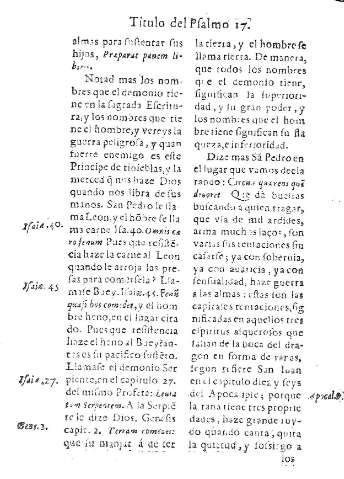 Titulo del Psalmo 17.
almas para sustentar sus
hijos, Præparat panem li-
beris.
Notad mas los nom-
bres que el demonio tie-
ne en la sagrada Escritu-
ra, y los nombres que tie
ne el hombre, y vereys la
guerra peligrosa, y quan
fuerte enemigo es este
Principe de tinieblas, y la
merced q̃ nos haze Dios
quando nos libra de sus
manos. San Pedro le lla
ma Leon, y el hõbre se lla
ma carne Isa. 40. Omnis ca
ro fœnum Pues que resistẽ-
cia haze la carne al Leon
quando le arroja las pre-
sas para comersela? Lla-
mase Buey. Isaiæ. 45
quasi bos comedet, y el hom
bre heno, en el lugar cita
do. Pues que resistencia
haze el heno al Buey? an-
tes es su pacifico sustẽto.
Llamase el demonio Ser
piente, en el capitulo 27.
del mismo Profeta: Leuia
tan Serpentem. A la Serpiẽ
te le dize Dios. Genesis
capit. 2. Terram comedet:
que su manjar á de ser
Isaiæ. 40.
Isaiæ. 45
Isaiæ. 27.
Genes. 3.
la tierra, y el hombre se
llama tierra. De manera,
que todos los nombres
que el demonio tiene,
significan la superiori-
dad, y su gran poder, y
los nombres que el hom
bre tiene significan su fla
queza, e inferioridad.
Dize mas Sã Pedro en
el lugar que vamos decla
rando: Circuit quærens quẽ
deuoret. Que dà bueltas
buscando a quien tragar,
que vsa de mil ardides,
arma muchos laços, son
varias sus tentaciones sin
cansarse, ya con soberuia,
ya con auaricia, ya con
sensualidad, haze guerra
a las almas: estas son las
capitales tentaciones, sig
nificadas en aquellos tres
espiritus asquerosos que
salian de la boca del dra-
gon en forma de ranas,
segun refiere San Iuan
en el capitulo diez y seys
del Apocalipsi; porque
la rana tiene tres proprie
dades, haze grande ruy-
do quando canta; quita
la quietud, y sossiego a
los